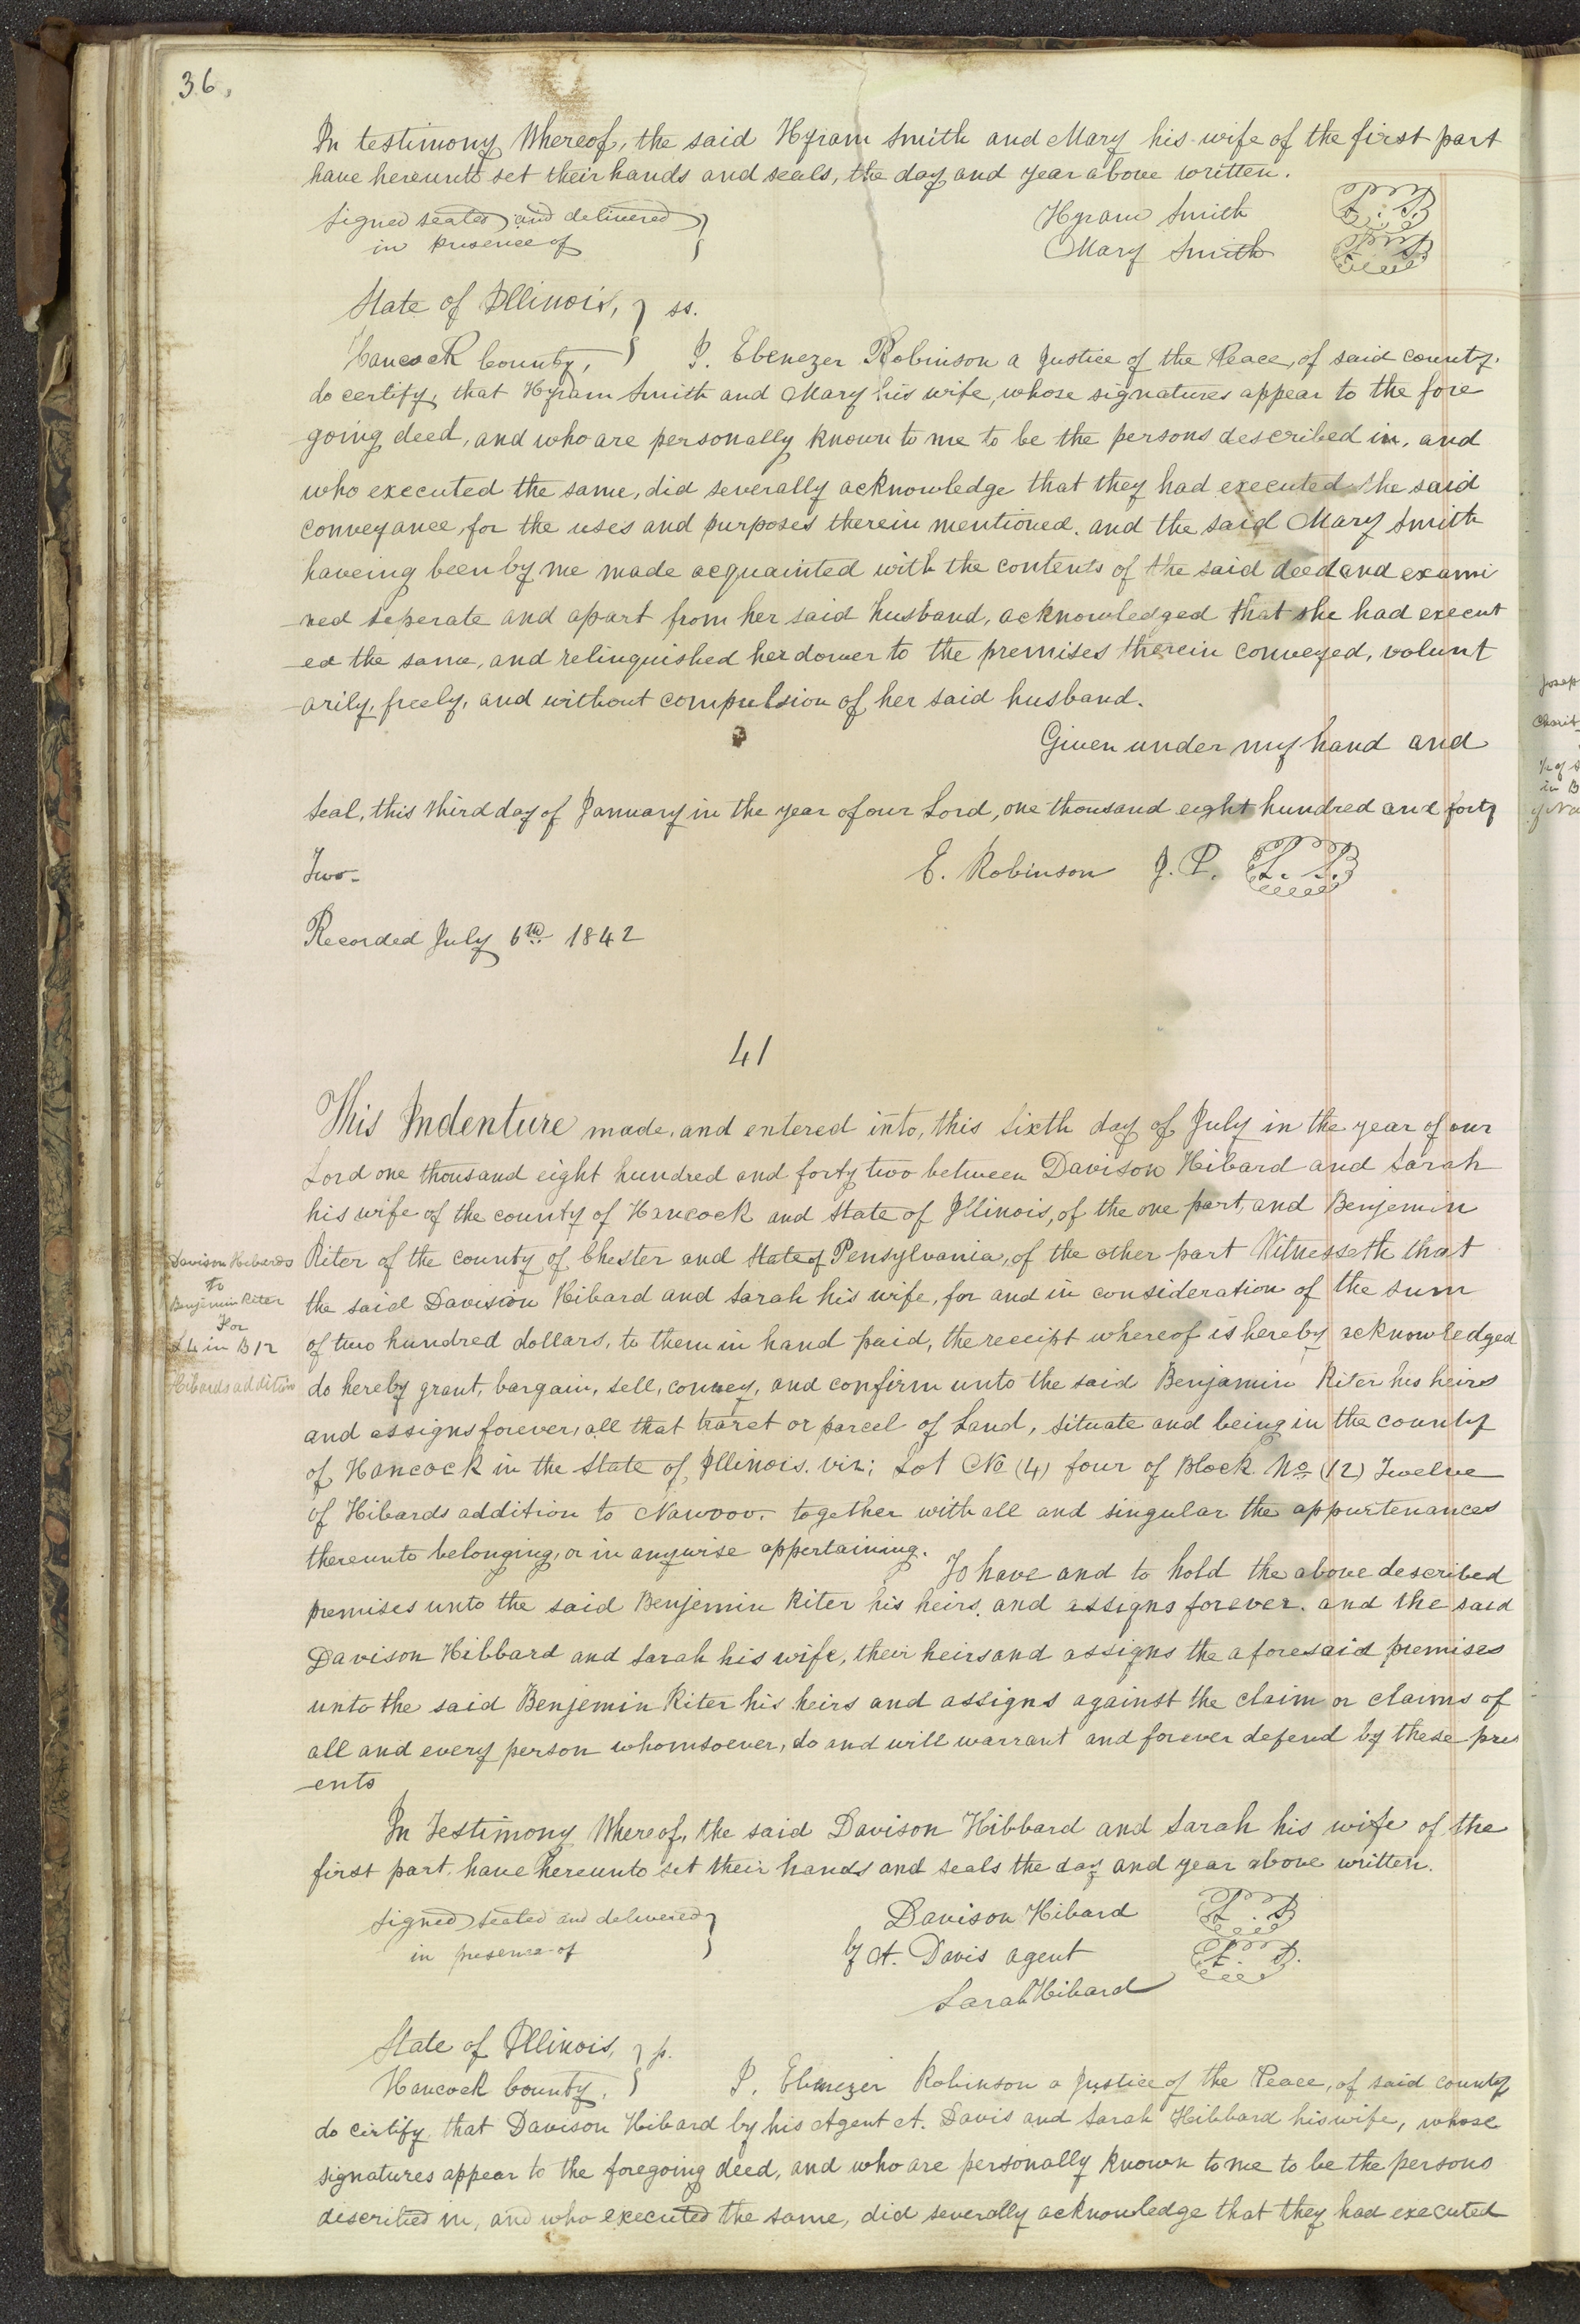 36.
In testimony Whereof, the said Hyram Smith and Mary his wife of the first part
have hereunto set their hands and seals, the day and year above written.
Signed sealed and delivered } Hyram Smith L. S.
in presence of } Mary Smith L. S.
State of Illinois, } ss.
Hancock County, } I. Ebenezer Robinson a Justice of the Peace, of said county.
do certify, that Hyram Smith and Mary his wife, whose signatures appear to the fore
going deed, and who are personally known to me to be the persons described in, and
who executed the same, did severally acknowledge that they had executed the said
conveyance, for the uses and purposes therein mentioned. and the said Mary Smith
haveing been by me made acquainted with the contents of the said deed and exami
-ned seperate and apart from her said husband, acknowledged that she had execut
-ed the same, and relinquished her dower to the premises therein conveyed, volunt
-arily, freely, and without compulsion of her said husband.
Given under my hand and
Seal, this third day of January in the year of our Lord, one thousand eight hundred and forty
Two- E. Robinson J. P. L. S.
Recorded July 6th 1842
41
This Indenture made, and entered into, this Sixth day of July in the year of our
Lord one thousand eight hundred and forty two between Davison Hibard and Sarah
his wife of the county of Hancock and State of Illinois, of the one part, and Benjemin
Riter of the county of Chester and State of Pensylvania, of the other part Witnesseth that
the said Davision Hibard and Sarah his wife, for and in consideration of the sum
of two hundred dollars, to them in hand paid, the receipt whereof is hereby acknowledged
do hereby grant, bargain, sell, convey, and confirm unto the said Benjamin Riter his heirs
and assigns forever, all that traret or parcel of Land, situate and being in the county
of Hancock in the State of Illinois. viz; Lot No (4) four of Block No (12) Twelve
of Hibards addition to Nauvoo. together with all and singular the appurtenances
thereunto belonging, or in anywise appertaining. To have and to hold the above described
premises unto the said Benjemin Riter his heirs. and assigns forever. and the said
Davison Hibbard and Sarah his wife, their heirs and assigns the aforesaid premises
unto the said Benjemin Riter his heirs and assigns against the claim or claims of
all and every person whomsoever, do and will warrant and forever defend by these pres
-ents
In Testimony Whereof, the said Davison Hibbard and Sarah his wife of the
first part have hereunto set their hands and seals the day and year above written.
Signed sealed and delivered } Davison Hibard L. S.
in presence of } by A. Davis agent L. S.
Sarah Hibard
State of Illinois, } p.
Hancock County, } I. Ebenezer Robinson a Justice of the Peace, of said county
do certify that Davison Hibard by his Agent A. Davis and Sarah Hibbard his wife, whose
signatures appear to the foregoing deed, and who are personally known to me to be the persons
discribed in, and who executed the same, did severally acknowledge that they had executed
Davison Hibards
to
Benjimin Riter
For
L 4 in B 12
Hibards addition